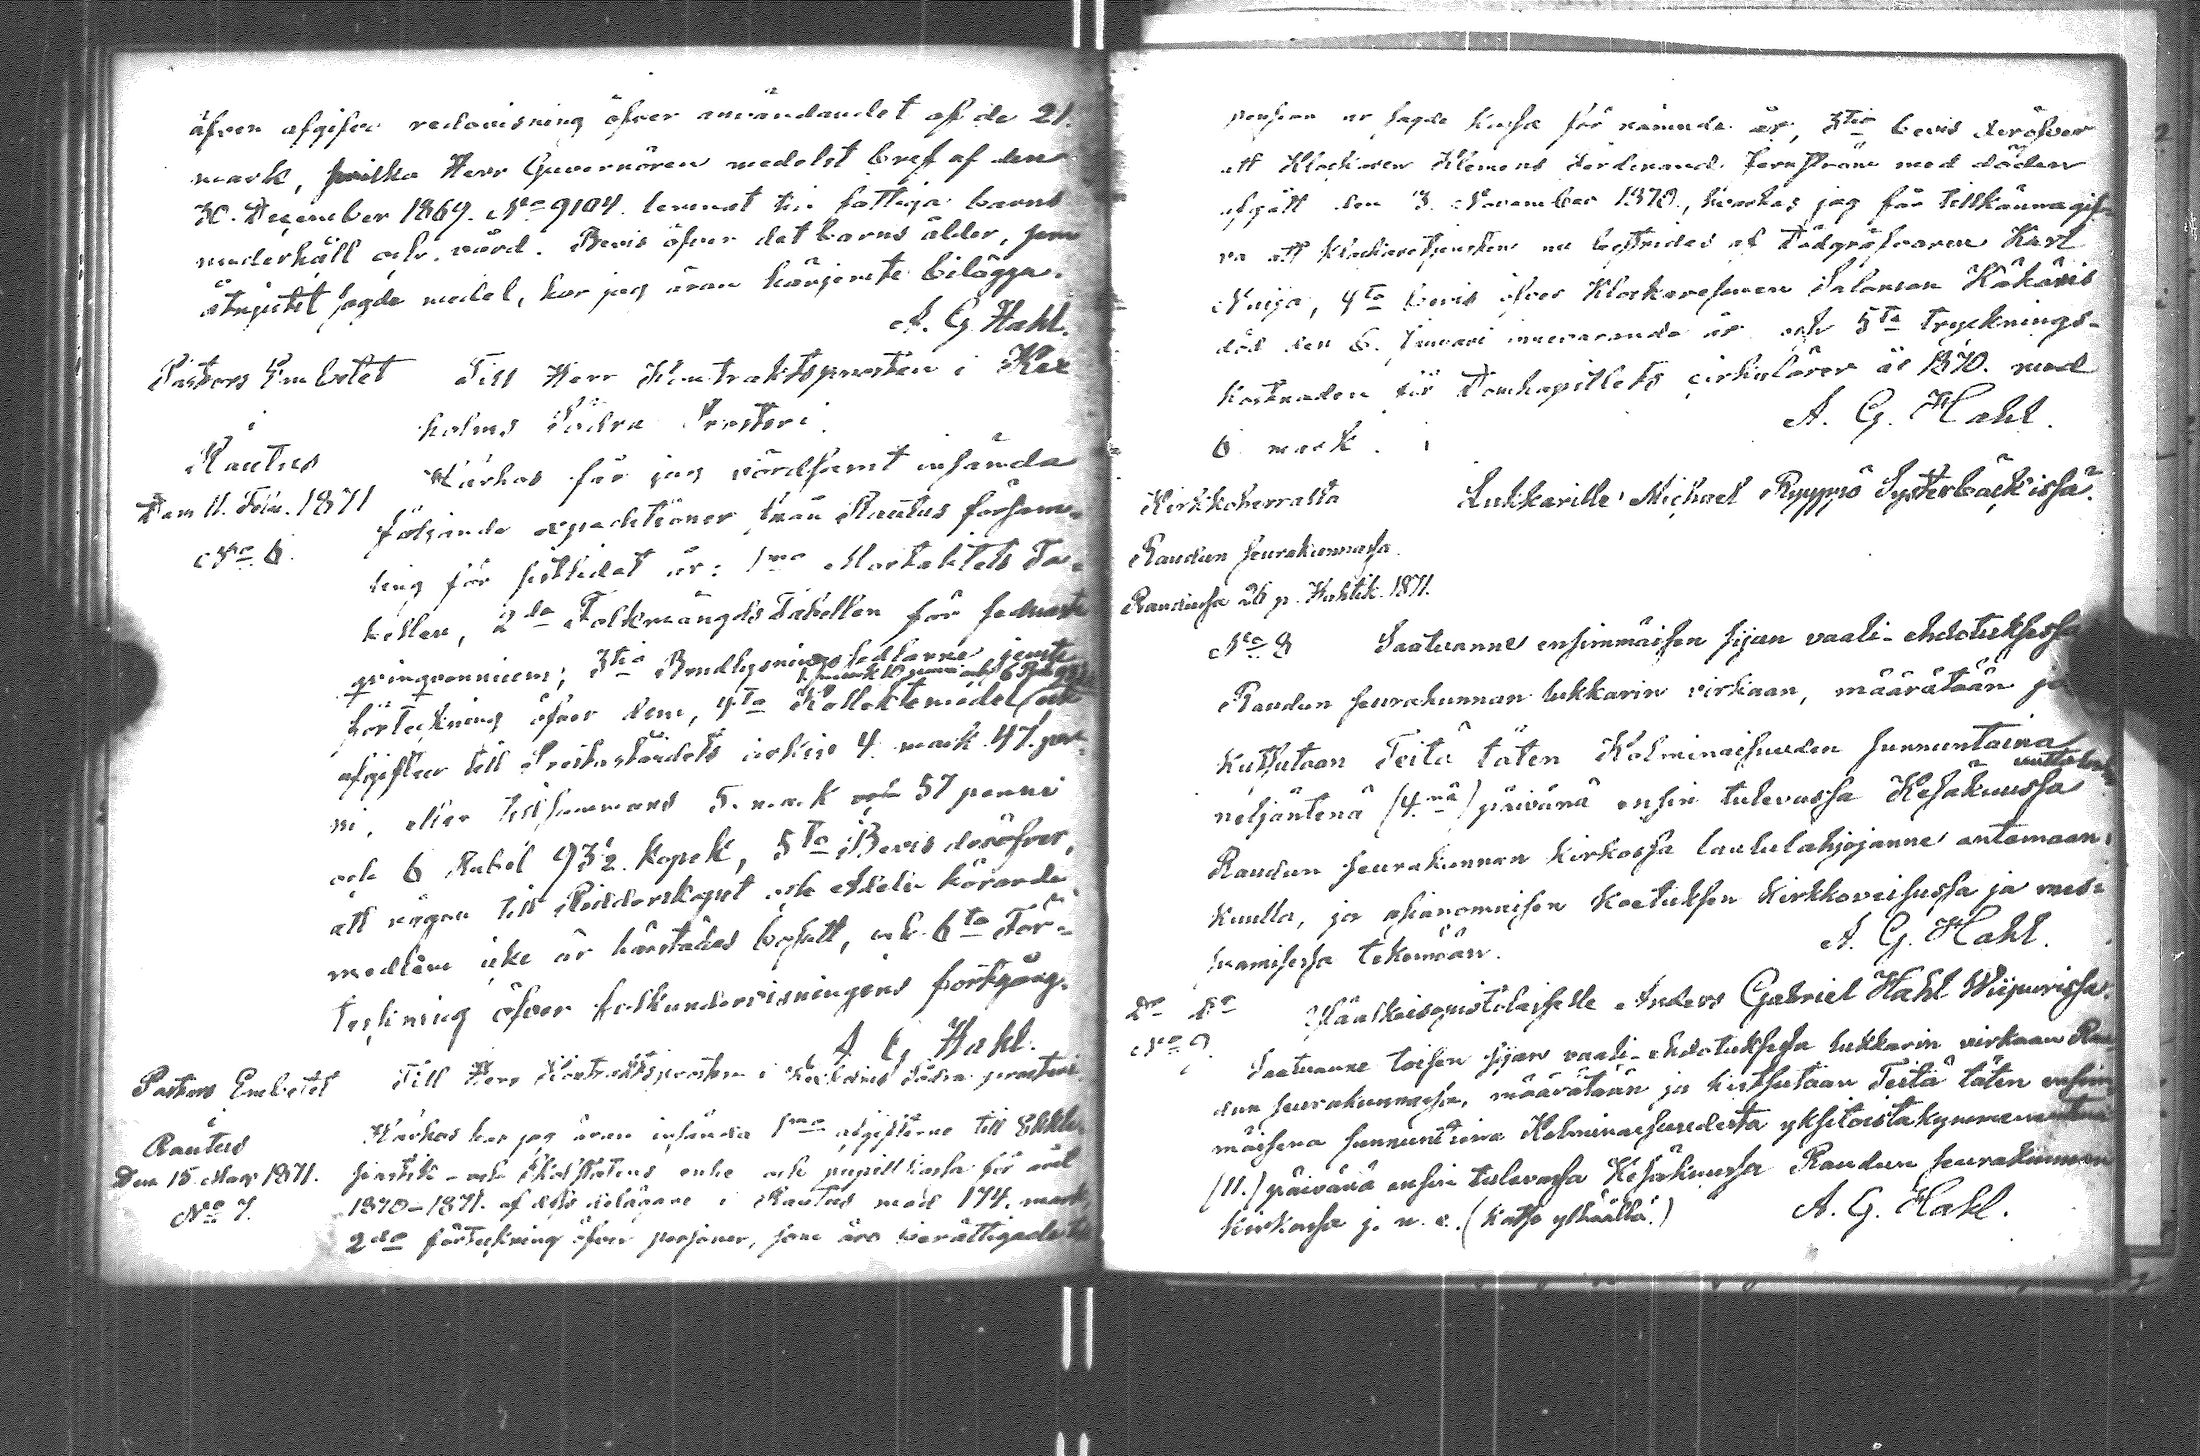 äfven afgifva redovisning öfver användandet af de 21.
mark, hvilka Herr Guvernören medelst bref af den
30. December 1869. No 9104. lemnat till fattiga barns
underhåll och vård. Bevis öfver det barns ålder, som
åtnjutit sagde medel, har jag äran härjemte bilägga.
A. G. Hahl.
Pastors Embetet
i
Rautus
Den 11. Febr. 1871
No 6.
Till Herr Kontraktsprosten i Kex
holms Södra Prosteri.
Härhos får jag vördsamt insända
följande expeditioner från Rautus försam-
ling för sistlidet år: 1mo Mortalitets Ta-
bellen, 2do Folkmängds Tabellen för sednaste
qvinqvennium; 3tio Brudlysnings sedlarne jemte
förteckning öfver dem, 4to Kollektmedel och
afgifter till Prestaståndets arkiv 4. mark 47. pen-
ni, eller tillsammans 5. mark och 57 penni
och 6 Rubel 93½ kopek, 5to Bevis deröfver,
att någon till Ridderskapet och Adeln hörande
medlem icke är härstädes bosatt, och 6to För-
teckning öfver folkundervisningens fortgång.
A. G. Hahl.
Pastors Embetet
i
Rautus
Den 15. Mars 1871.
No 7.
Till Herr Kontraktsprosten i Kexholms Södra prosteri.
Härhos har jag äran insända 1mo afgifterne till Eckle-
siastik- och Skolstatens enke och pupill kassa för året
1870-1871. af dess delägare i Rautus med 174. mark
2do förteckning öfver personer, som äro berättigade till
pension ur sagde kassa för nämnde år, 3tio bevis deröfver
att Klockaren Klemens Ferdinand Fernström med döden
afgått den 3. November 1870., hvarhos jag får tillkännagif-
va att Klockaretjensten nu bestrides af Dödgräfvaren Karl
Nuija, 4to bevis öfver Klockaresonen Salomon Käkönis
död den 6. Januari innevarande år och 5to trycknings-
kostnaden för Domkapitlets cirkulärer år 1870. med
6 mark.
A. G. Hahl.
Kirkkoherralta
Raudun seurakunnassa
Raudussa 26 p. Huhtik. 1871.
No 8
Lukkarille Michael Ryyppö Systerbäckissä.
Saatuanne ensimmäisen sijan vaali-ehdotuksessa
Raudun seurakunnan lukkarin virkaan, määrätään ja
kutsutaan Teitä täten Kolminaisuuden sunnuntaina
neljäntenä (4.nä) päivänä ensin tulevassa Kesäkuussa
Raudun seurakunnan kirkossa laululahjojanne antamaan
kuulla, ja asianomaisen koetuksen Kirkkoveisussa ja mes-
suamisessa tekemään.
A. G. Hahl.
Do Do
No 9.
Saatuanne toisen sijan vaali-ehdotuksessa lukkarin virkaan Rau-
dun seurakunnassa, määrätään ja kutsutaan Teitä täten ensim-
mäisenä sunnuntaina Kolminaisuudesta yksitoistakymmenentenä
(11.) päivänä ensin tulevassa Kesäkuussa Raudun seurakunnan
kirkossa j. n. e. (katso ylhäällä.)
A. G. Hahl.